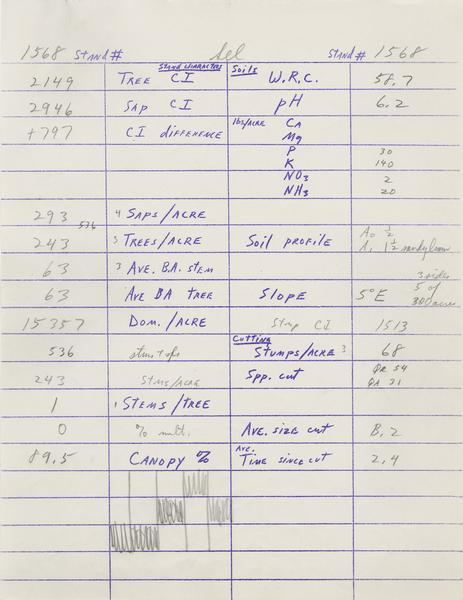 1568 Stand# Sel Stand# 1568
Stand Characters Soils
2149 Tree CI W.R.C. 58.7
2946 Sap CI pH 6.2
+797 CI difference lbs/acre Ca
Mg
P 30
K 140
NO3 2
NH3 20
293 4 Saps/acre
536
243 3 Trees/acre Soil profile A0 1/2
A1 1 1/2 sandy loam
63 3 Ave. B.A. stem
63 Ave BA tree Slope 5°E 3 sides
5 of
300 acres
15357 Dom./acre Stump CI 1513
Cutting
536 stms + sps Stumps/acre 3 68
243 Stms/acre Spp. cut QR 54
QA 31
1 1 Stems/tree
0 % mult. Ave. size cut 8.2
89.5 Canopy % Ave. Time since cut 2.4